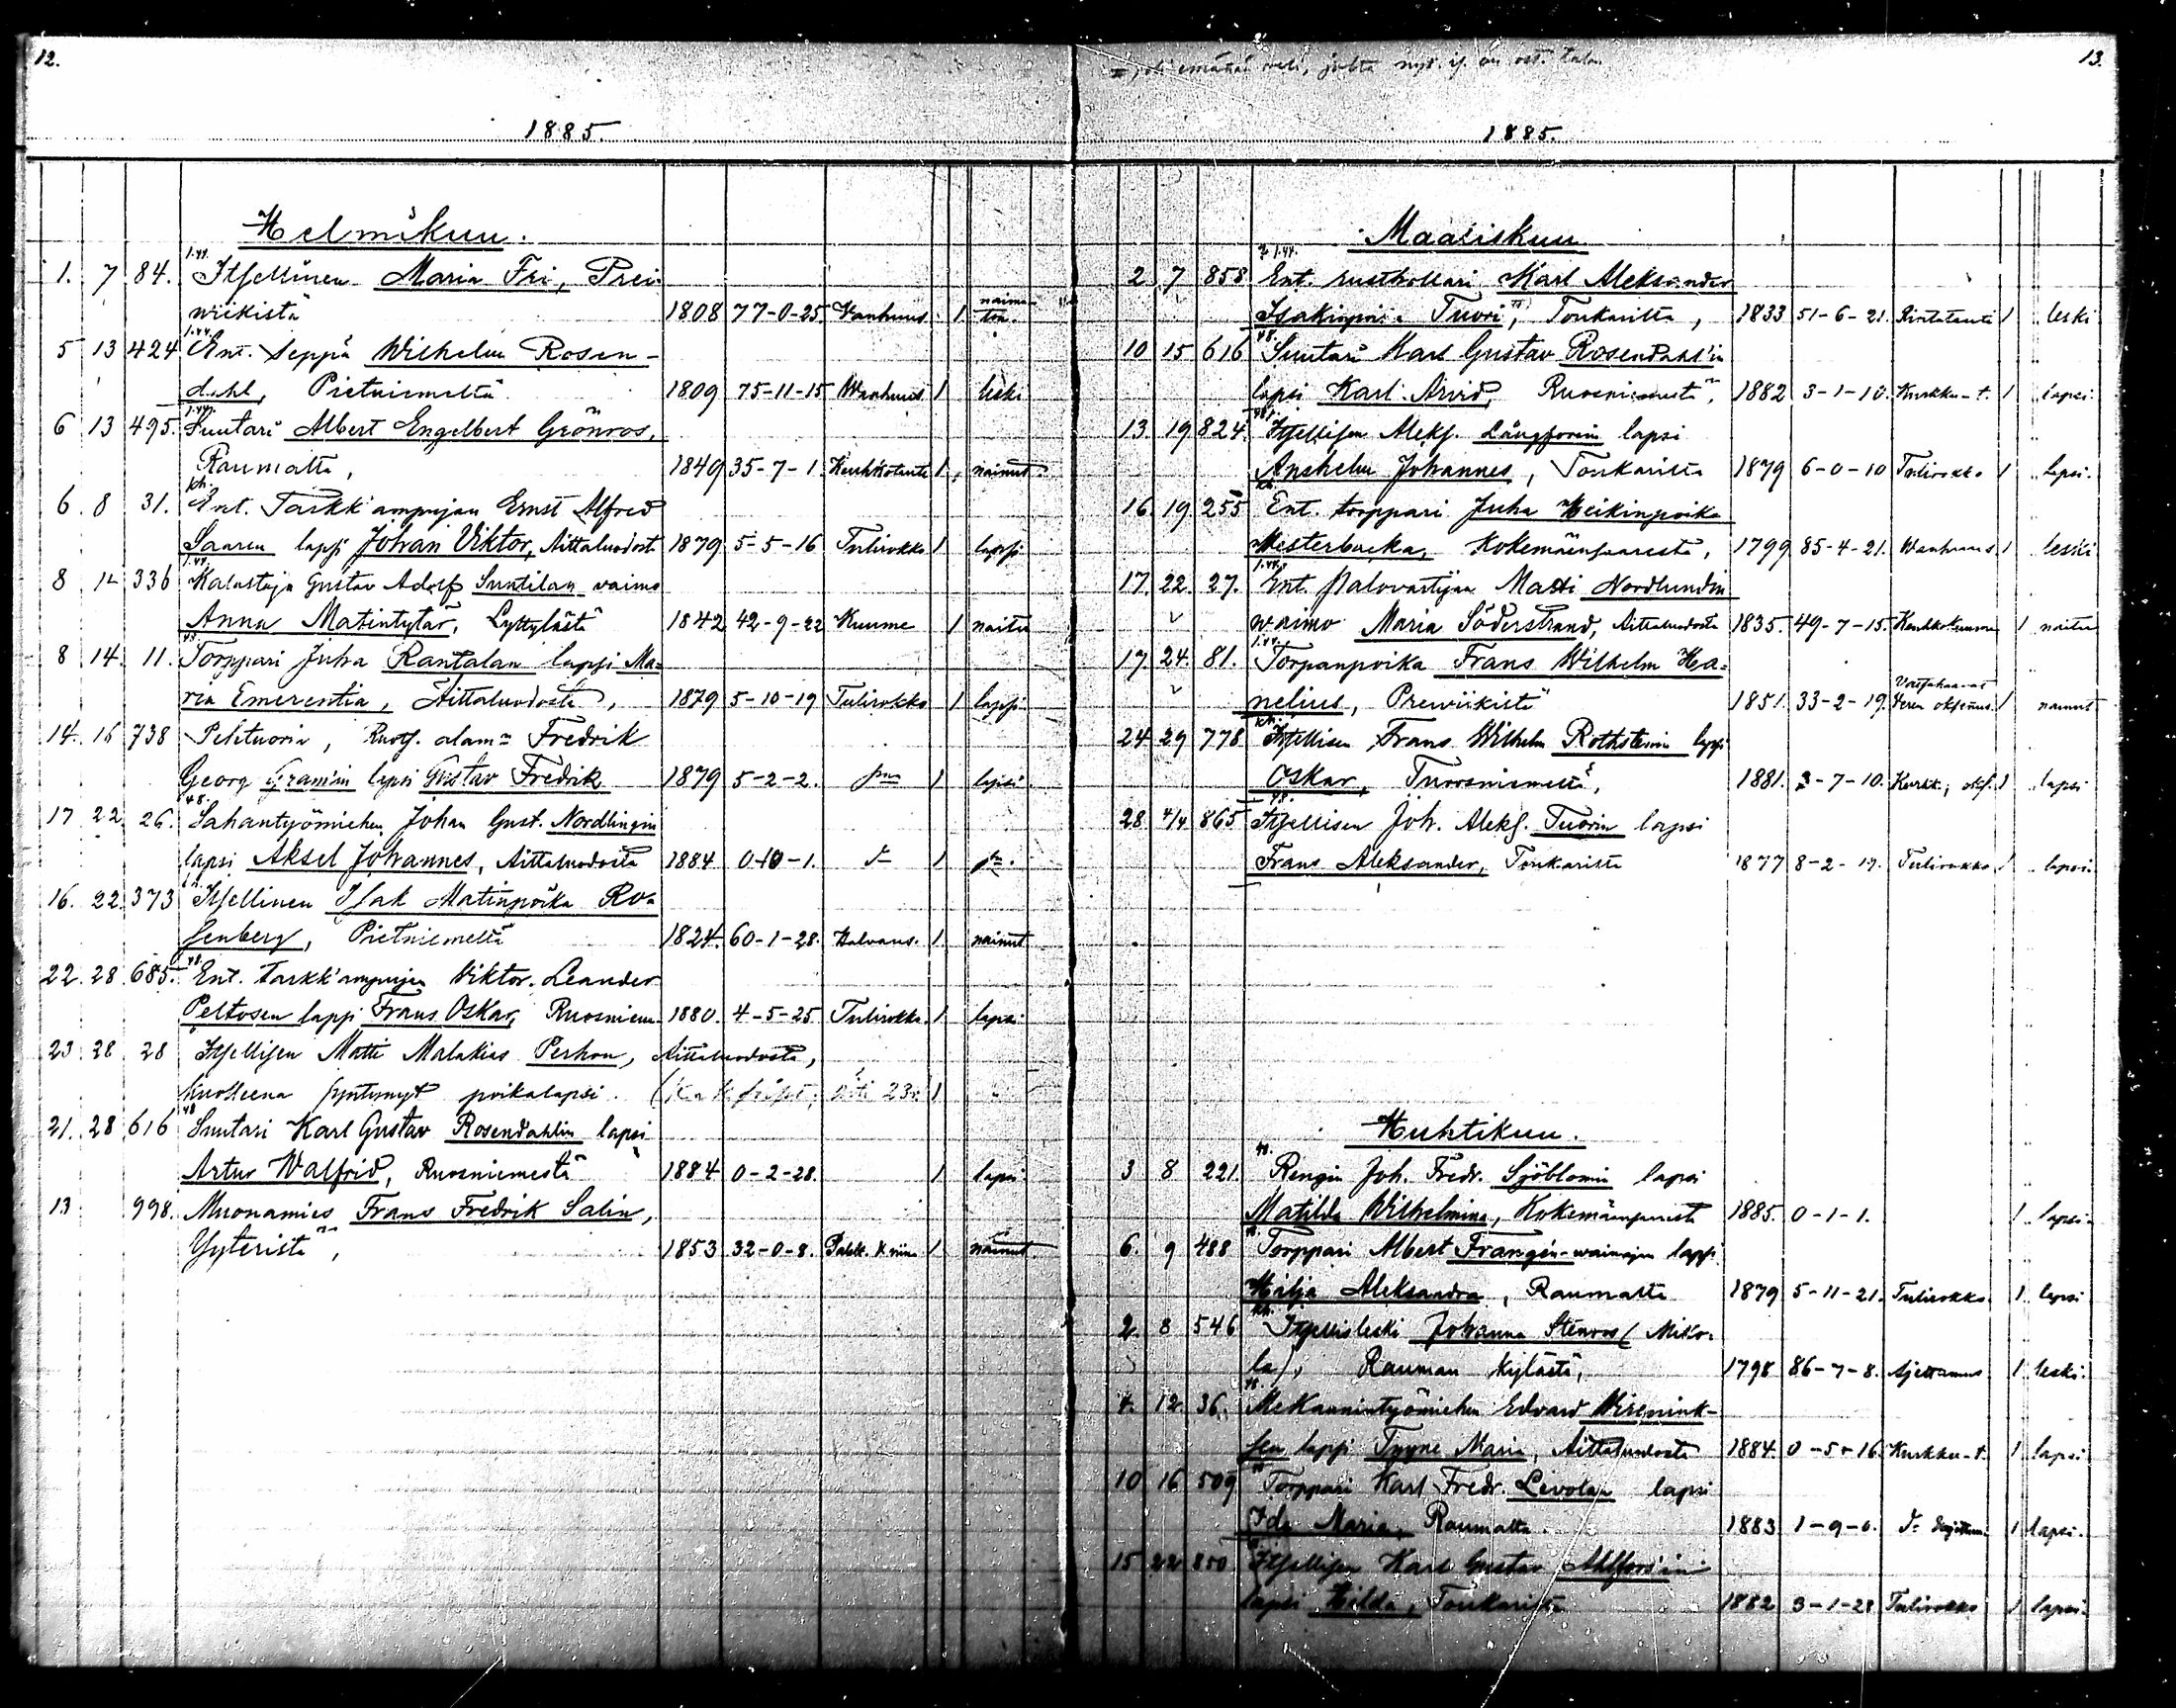 12.
1885.
Helmikuu.
1. 7 84. Itsellinen Maria Fri, Prei-
wiikistä 1808 77-0-25. Vanhuus 1 naima-
ton.
5 13 424 Ent. Seppä Wilhelm Rosen-
dahl, Pietniemeltä 1809 75-11-15 Wanhuus 1 leski
6 13 495. Suutari Albert Engelbert Grönroos,
Raumalta, 1849 35-7-1 Keuhkotauti 1 nainut
6 8 31. Ent. Tarkk'ampujan Ernst Alfred
Saaren lapsi Johan Viktor, Aittaluodosta 1879 5-5-16 Tulirokko 1 lapsi
8 12 336 Kalastaja Gustav Adolf Suntilan vaimo
Anna Matintytär, Lyttylästä 1842 42-9-22 Kuume 1 naitu
8 14. 11. Torppari Juha Rantalan lapsi Ma-
ria Emerentia, Aittaluodosta, 1879 5-10-19 Tulirokko 1 lapsi
14. 16 738 Peltuorin, Ruots. alam= Fredrik
Georg Gramin lapsi Gustav Fredrik 1879 5-2-2. 1 lapsi
17 22 26. Sahantyömiehen Johan Gust. Nordlingin
lapsi Aksel Johannes, Aittaluodosta 1884 0-10-1. 1
16. 22. 373 Itsellinen Isak Matinpoika Ro-
senberg, Pietniemeltä 1824. 60-1-28. Halvaus. 1 nainut
22. 28. 685. Ent. tarkk'ampujan Viktor Leander
Peltosen lapsi Frans Oskar, Ruosniem 1880. 4-5-25. Tulirokko 1 lapsi
23. 28 28 Itsellisen Matti Malakias Perhon, Aittaluodosta,
kuolleena syntynyt poikalapsi. äiti 23v. 1
21. 28 616 Suutari Karl Gustav Rosendahlin lapsi
Artur Walfrid, Ruosniemestä 1884 0-2-28. 1 lapsi
13 998. Muonamies Frans Fredrik Salin,
Yyteristä, 1853 32-0-8. 1 nainut
13.
1885.
Maaliskuu
2 7 858 Ent. rusthollari Karl Aleksander
Isakinpoika Tuori, Toukarilta, 1833 51-6-21. Rintatauti 1 leski
10 15 616 Suutari Karl Gustav Rosendahl'in
lapsi Karl Arvid, Ruosniemestä, 1882 3-1-10. Kurkku-t. 1 lapsi.
13. 19 824 Itsellisen Aleks. Långforsin lapsi
Anshelm Johannes, Toukarilta 1879 6-0-10 Tulirokko 1 lapsi.
16. 19. 255 Ent. torppari Juha Heikinpoika
Westerbacka, Kokemäensaaresta, 1799 85-4-21. Wanhuus 1 leski
17. 22. 27. Ent. palovartijan Matti Nordlundin
waimo Maria Söderstrand, Aittaluodosta 1835. 49-7-15. Keuhkokuume 1 naitu
17 24. 81. Torpanpoika Frans Wilhelm Ha-
nelius, Preiwiikistä 1851. 33-2-19. Veren oksennus 1 nainut
24 29 778 Itsellisen Frans Wilhelm Rothstenin lapsi
Oskar, Tuorsniemeltä, 1881. 3-7-10. 1 lapsi
28 4/4 865 Itsellisen Joh. Aleks. Tuorin lapsi
Frans Aleksander, Toukarilta 1877 8-2-19. Tulirokko 1 lapsi.
Huhtikuu.
3 8 221. Rengin Joh. Fredr. Sjöblomin lapsi
Matilda Wilhelmina, Kokemäensaaresta 1885. 0-1-1. 1 lapsi
6. 9 488 Torppari Albert Frangén-wainajan lapsi
Hilja Aleksandra, Raumalta 1879 5-11-21. Tulirokko 1 lapsi
2. 8 546 Itsellisleski Johanna Stenroos (Mikko-
la), Rauman kylästä, 1798 86-7-8. Ajettumus 1 leski.
4. 12 36. Mekaanintyömiehen Edvard Wirenink-
sen lapsi Tyyne Maria, Aittaluodosta 1884. 0-5-16. Kurkku-t. 1 lapsi.
10 16 509 Torppari Karl Fredr. Levolan lapsi
Ida Maria, Raumalta. 1883 1-9-6. 1 lapsi.
15 22 850 Itsellisen Karl Gustav Ahlfors'in
lapsi Hilda, Toukarilta 1882 3-1-28 Tulirokko 1 lapsi.